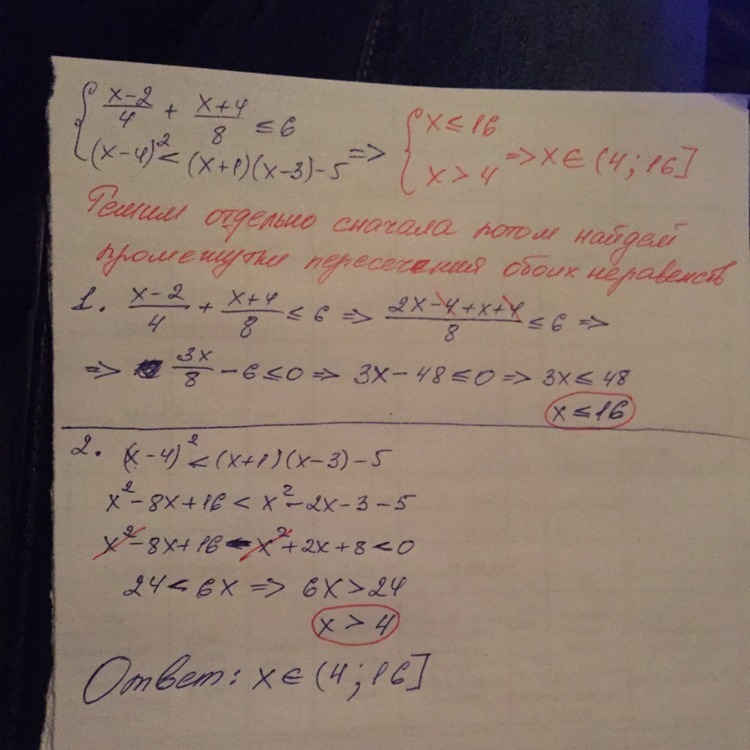 { (x-2)/4 + (x+4)/8 ≤ 6
(x-4)² < (x+1)(x-3)-5 => { x ≤ 16
x > 4 => x ∈ (4; 16]
Решим отдельно сначала потом найдем
промежутки пересечения обоих неравенств
1. (x-2)/4 + (x+4)/8 ≤ 6 => (2x-4+x+4)/8 ≤ 6 =>
=> 3x/8 - 6 ≤ 0 => 3x - 48 ≤ 0 => 3x ≤ 48
x ≤ 16
2. (x-4)² < (x+1)(x-3)-5
x² - 8x + 16 < x² - 2x - 3 - 5
x² - 8x + 16 - x² + 2x + 8 < 0
24 < 6x => 6x > 24
x > 4
Ответ: x ∈ (4; 16]